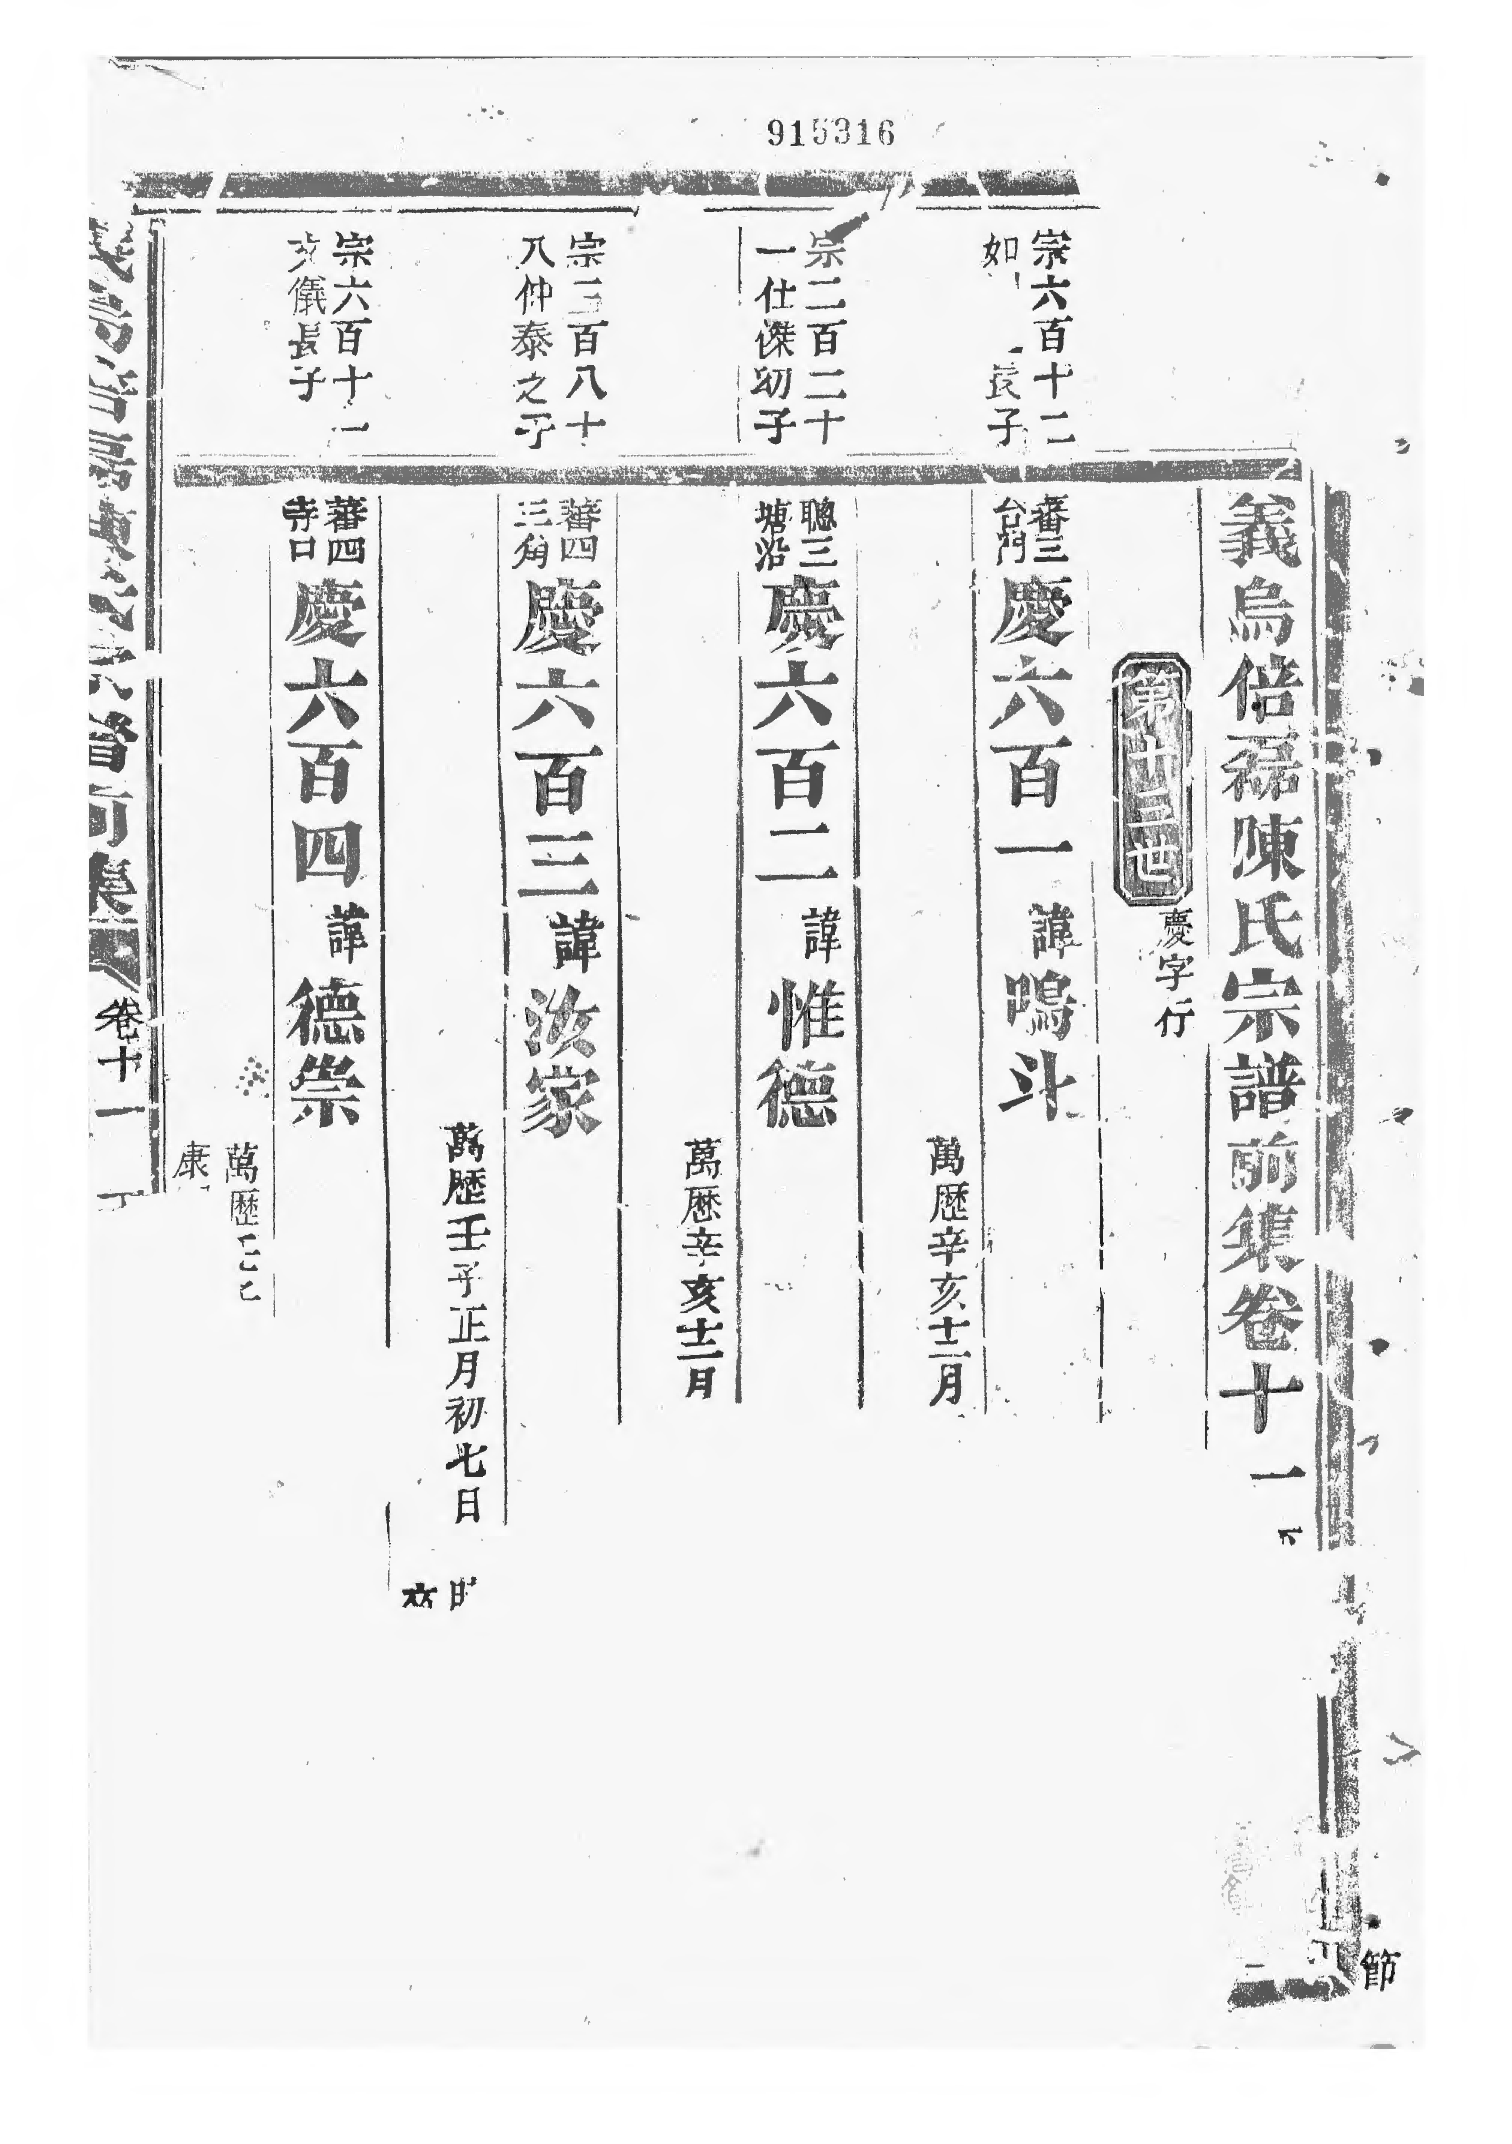 915316
義烏倍磊陳氏宗譜前集卷十一
第十三世
慶字行
宗六百十二
如 長子
蕃三
台門
慶六百一
諱鳴斗
萬歷辛亥十二月
宗二百二十
一仕傑幼子
聰三
塘沿
慶六百二
諱惟德
萬歷辛亥十二月
宗二百八十
八仲泰之子
蕃四
三角
慶六百三
諱汝家
萬歷壬子正月初七日
宗六百十一
儀長子
蕃四
寺口
慶六百四
諱德崇
萬歷
康
卷十一
節